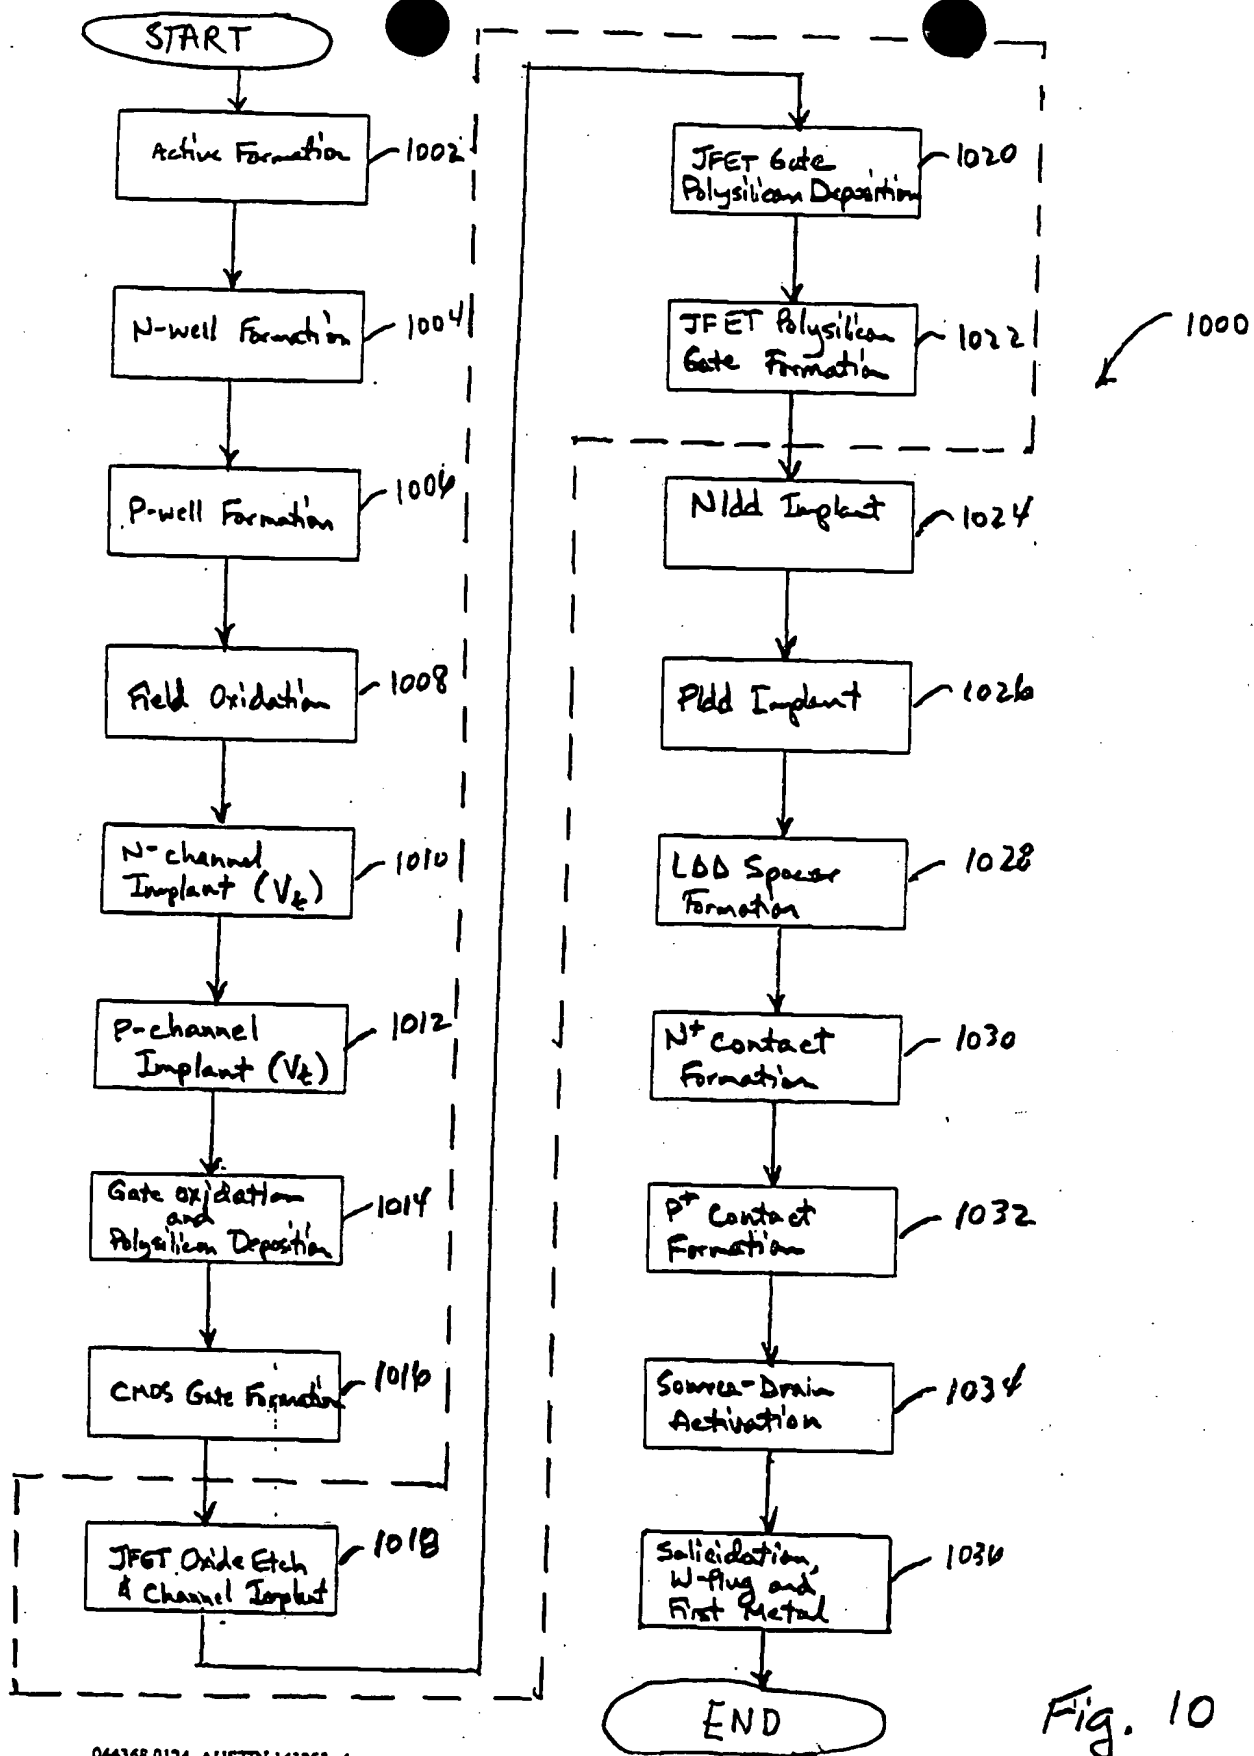 START
Active Formation
1002
N-well Formation
1004
P-well Formation
1006
Field Oxidation
1008
N-channel
Implant (Vt)
1010
P-channel
Implant (Vt)
1012
Gate oxidation
and
Polysilicon Deposition
1014
CMOS Gate Formation
1016
JFET Oxide Etch
& Channel Implant
1018
JFET Gate
Polysilicon Deposition
1020
JFET Polysilicon
Gate Formation
1022
1000
Nldd Implant
1024
Pldd Implant
1026
LDD Spacer
Formation
1028
N+ Contact
Formation
1030
P+ Contact
Formation
1032
Source-Drain
Activation
1034
Salicidation,
W-plug and
First Metal
1036
END
Fig. 10